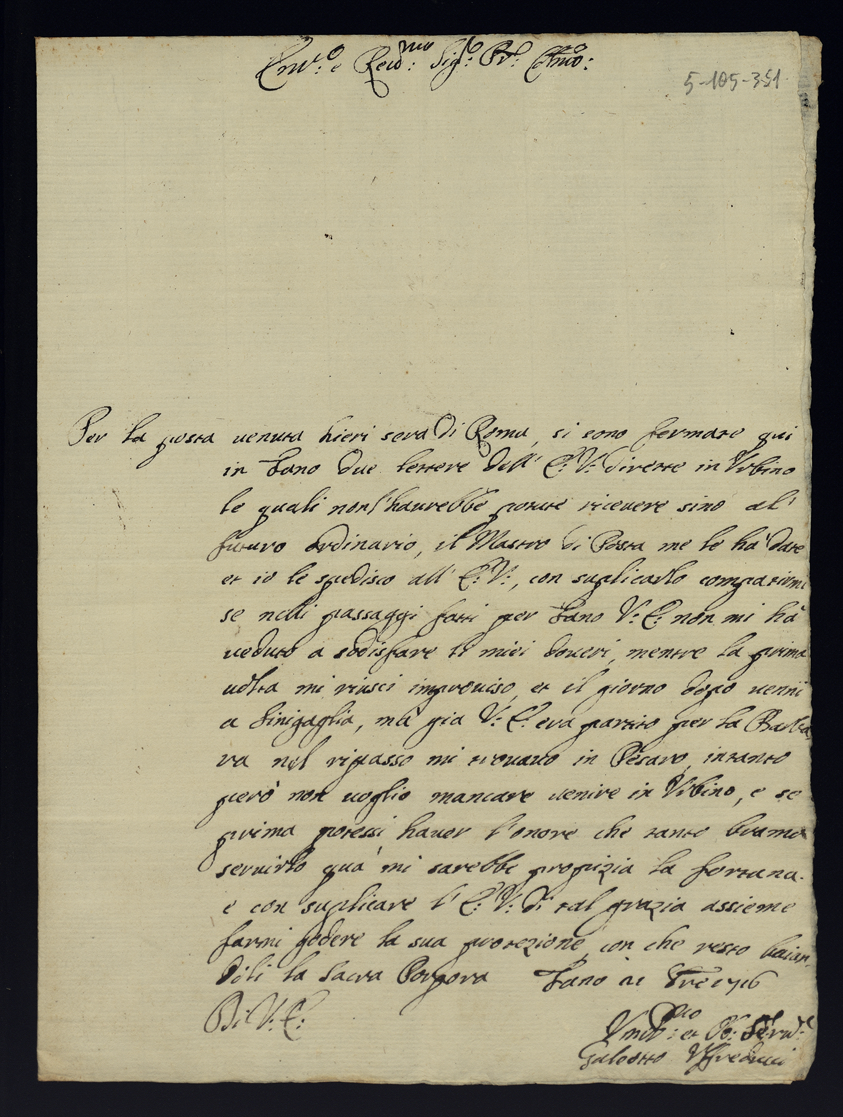 Em.º e Reu.mo Sig.r P.
5-105-351
Per la posta uenuta hieri sera di Roma, si sono fermate qui
in Fano due lettere dell' E: V: dirette in Vrbino
le quali non l'haurebbe potute riceuere sino al'
futuro ordinario, il Mastro di Posta me le hà date
et io le spedisco all' E: V:, con suplicarlo compatirmi
se nelli passaggi fatti per Fano V: E: non mi hà
ueduto a sodisfare li miei doueri, mentre la prima
uolta mi riusci improuiso, et il giorno dopo uenni
a Sinigaglia, mà già V: E: era partito per la Barba
ra nel ripasso mi trouauo in Pesaro, intanto
però non uoglio mancare uenire in Vrbino, e se
prima potessi hauer l'onore che tanto bramo
seruirlo quà mi sarebbe propizia la fortuna.
e con suplicare l' E: V: di tal grazia assieme
farmi godere la sua protezione con che resto bacian
doli la Sacra Porpora Fano 21 1716
Di V: E:
Vmil.mo et Ob: Seru.re
Galeotto Vffreducci